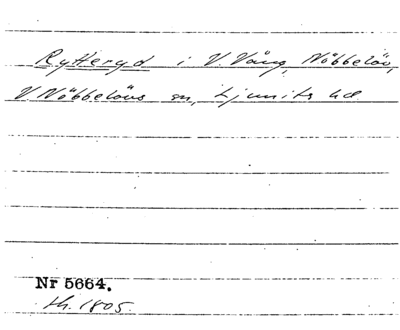 Rytteryd i V. Vång, Nöbbelöv,
V Nöbbelövs sn, Ljunits hd
Nr 5664.
sk. 1805.